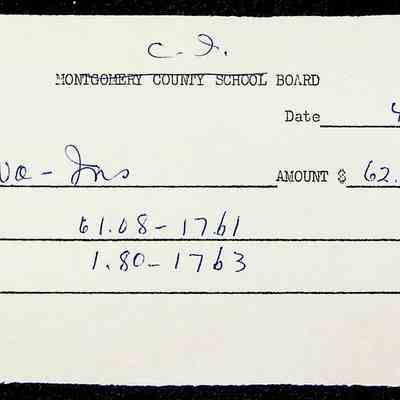 C. I.
MONTGOMERY COUNTY SCHOOL BOARD
Date 4
Ins AMOUNT $ 62.
61.08 - 1761
1.80 - 1763